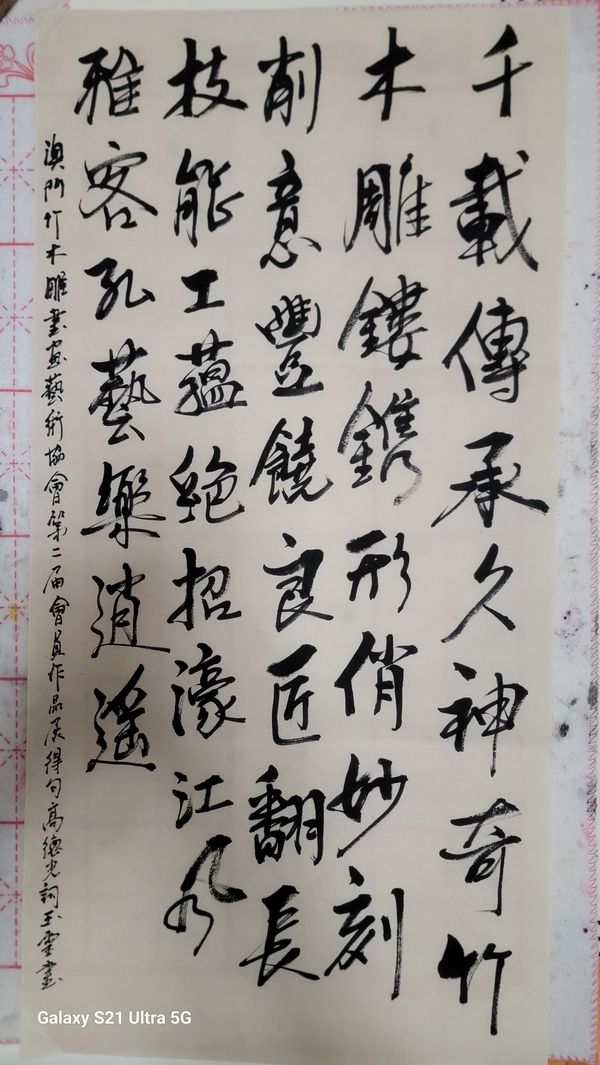 千載傳承久神奇竹
木雕鏤鐫形俏妙刻
削意豐饒良匠翻長
技能工蘊絕招濠江風
雅客孔藝樂逍遙
澳門竹木雕書画藝術協會第二届會員作品展得句高德光詞玉雲書
Galaxy S21 Ultra 5G